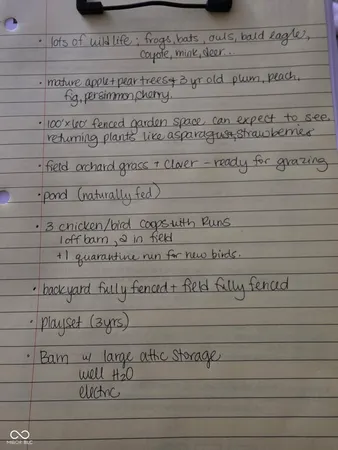 • lots of wild life; frogs, bats, owls, bald eagle,
coyote, mink, deer.
• mature apple + pear trees + 3 yr old plum, peach,
fig, persimmon, cherry.
• 100'x60' fenced garden space can expect to see
returning plants like asparagus, strawberries
• field orchard grass + clover - ready for grazing
• pond (naturally fed)
• 3 chicken/bird coops with runs
1 off barn, 2 in field
+1 quarantine run for new birds.
• backyard fully fienced + field fully fenced
• playset (3yrs)
• Barn w/ large attic storage
well H2O
electric